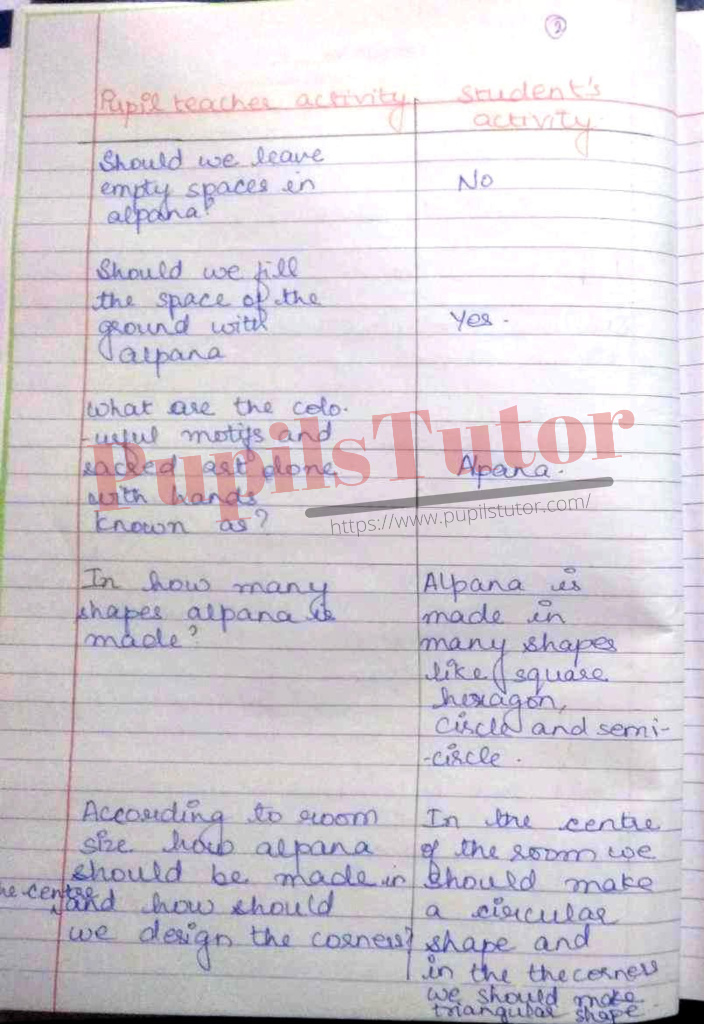 2
Pupil teacher activity
Student's
activity
Should we leave
empty spaces in
alpana?
No
Should we fill
the space of the
ground with
alpana
Yes.
What are the colo-
-urful motifs and
sacred art done
with hands
known as?
Alpana.
PupilsTutor
https://www.pupilstutor.com/
In how many
shapes alpana is
made?
Alpana is
made in
many shapes
like square
hexagon,
circle and semi-
-circle.
According to room
size how alpana
should be made in
the centre
and how should
we design the corners?
In the centre
of the room we
should make
a circular
shape and
in the the corners
we should make
triangular shape.